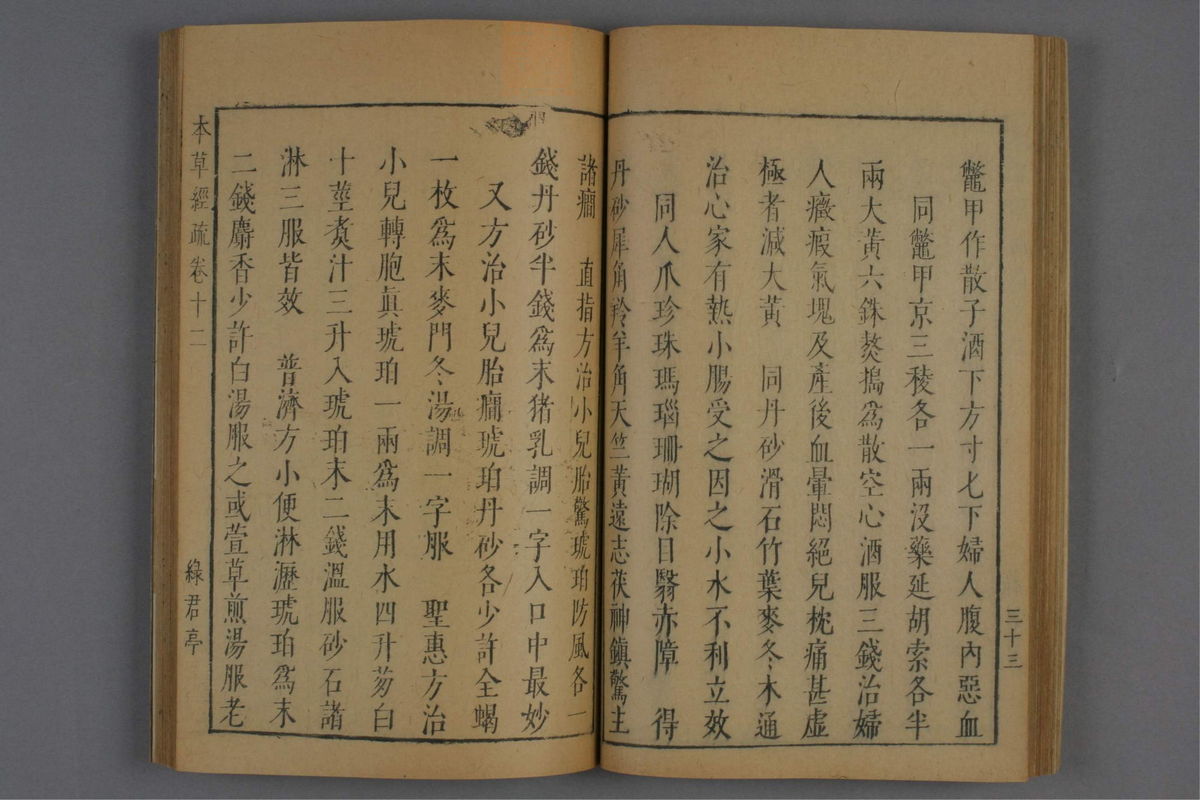 鼈甲作散子酒下方寸匕下婦人腹內惡血
同鼈甲京三稜各一兩沒藥延胡索各半
兩大黃六銖熬搗爲散空心酒服三錢治婦
人癥瘕氣塊及產後血暈悶絕兒枕痛甚虛
極者減大黃　同丹砂滑石竹葉麥冬木通
治心家有熱小腸受之因之小水不利立效
同人爪珍珠瑪瑙珊瑚除目翳赤障　得
丹砂犀角羚羊角天竺黃遠志茯神鎮驚主
三十三
諸癎　直指方治小兒胎驚琥珀防風各一
錢丹砂半錢爲末猪乳調一字入口中最妙
又方治小兒胎癎琥珀丹砂各少許全蝎
一枚爲末麥門冬湯調一字服　聖惠方治
小兒轉胞眞琥珀一兩爲末用水四升芴白
十莖煑汁三升入琥珀末二錢溫服砂石諸
淋三服皆效　普濟方小便淋瀝琥珀爲末
二錢麝香少許白湯服之或萱草煎湯服老
本草經疏卷十二
綠君亭